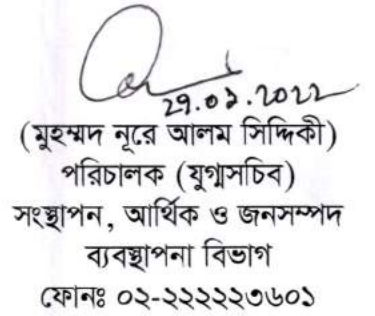 27.01.2022
(মুহম্মদ নূরে আলম সিদ্দিকী)
পরিচালক (যুগ্মসচিব)
সংস্থাপন, আর্থিক ও জনসম্পদ
ব্যবস্থাপনা বিভাগ
ফোনঃ ০২-২২২২২৩৬০১